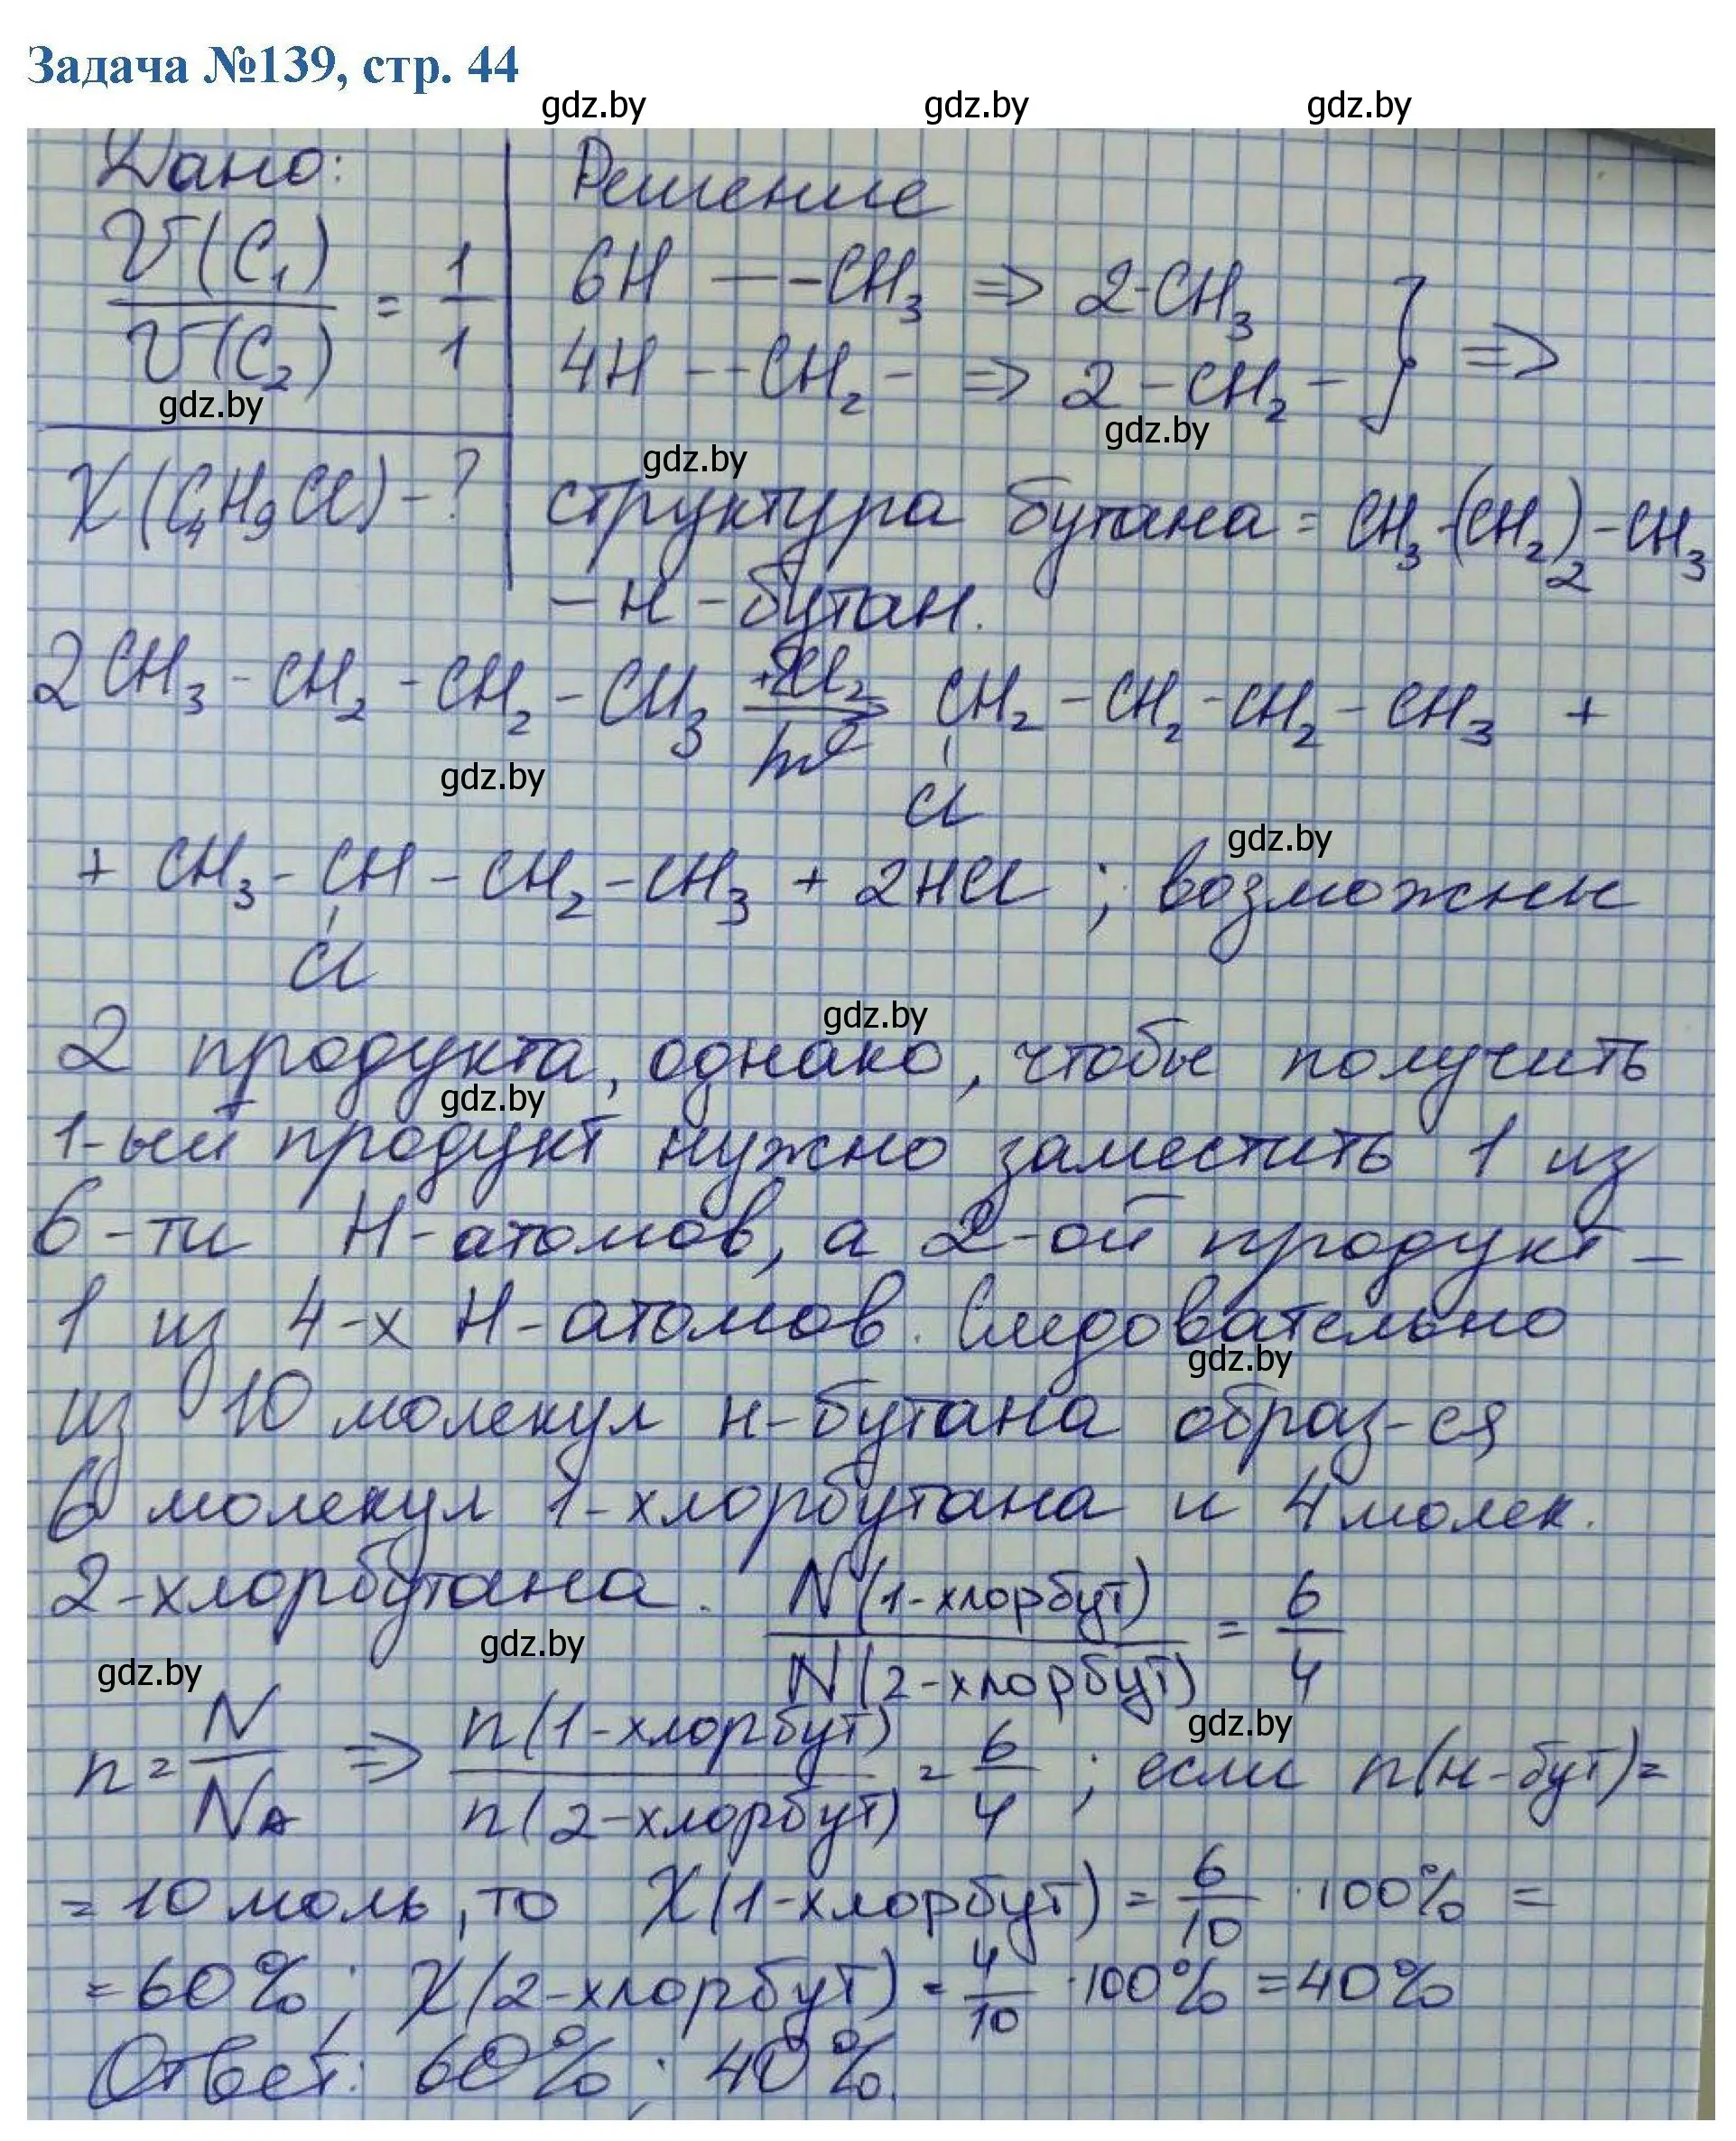 Задача №139, стр. 44
gdz.by gdz.by gdz.by
Дано: Решение
V(C₁)/V(C₂) = 1/1
6H — -CH₃ => 2-CH₃
4H - -CH₂- => 2-CH₂- } =>
gdz.by gdz.by
gdz.by
X(C₄H₉Cl)-? структура бутана = CH₃-(CH₂)₂-CH₃
- н-бутан.
2CH₃-CH₂-CH₂-CH₃ +2Cl₂/hν → CH₂-CH₂-CH₂-CH₃ +
gdz.by Cl
gdz.by
+ CH₃-CH-CH₂-CH₃ + 2HCl ; возможны
Cl
gdz.by
2 продукта, однако, чтобы получить
gdz.by
1-ый продукт нужно заместить 1 из
6-ти H-атомов, а 2-ой продукт -
1 из 4-х H-атомов. Следовательно
gdz.by
из 10 молекул н-бутана образ-ся
6 молекул 1-хлорбутана и 4 молек.
2-хлорбутана. N(1-хлорбут)/N(2-хлорбут) = 6/4
gdz.by gdz.by
gdz.by
n = N/Nₐ => n(1-хлорбут)/n(2-хлорбут) = 6/4 ; если n(н-бут)=
= 10 моль, то X(1-хлорбут) = 6/10 · 100% =
= 60%; X(2-хлорбут) = 4/10 · 100% = 40%
Ответ: 60%; 40%.